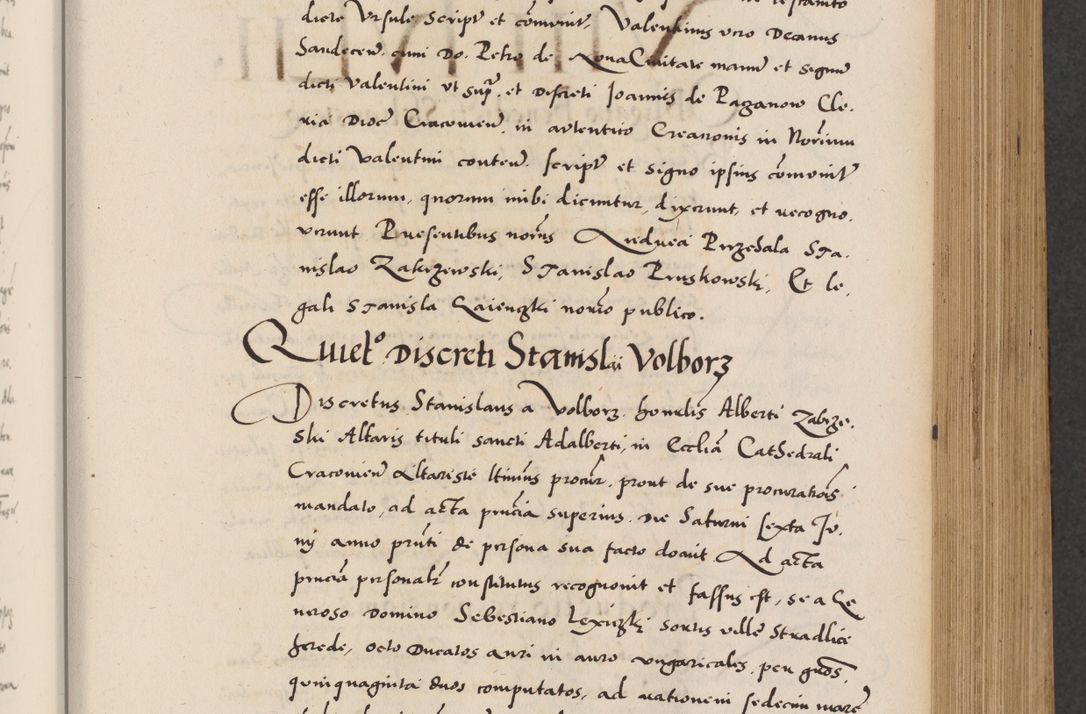 dicte Ursule script et convenit, Valentinus vero Decanus
Sandecen. cum Do. Petro de Nova Civitate manu et signu
dicti Valentini ut supr. et Discreti Joannis de Paganow Cle-
rici Dioc Cracovien. in autentico Creationis in Notarium
dicti Valentini conten. script et signo ipsius convenit
esse illorum, quorum inibi dicuntur, dixerunt, et recogno-
verunt Presentibus nobis Andrea Przedala Sta-
nislao Zakrzewski, Stanislao Pruskowski, Et le-
gali Stanisla Kaienczki notario publico.
Quiet° Discreti Stanislai Volborz
Discretus Stanislaus a Volborz honilis Alberti Zabrze-
ski Altaris tituli sancti Adalberti, in Ecclia Cathedrali
Cracovien Altariste ltimus procur. prout de sue procurationis
mandato, ad acta pncia superius. Die Saturni sexta Ju-
nij anno pnti de persona sua facto docuit Ad acta
pncia personalr constitutus recognovit et fassus est, se a Ge
neroso Domino Sebestiano Lexiczki sortis ville Stradlice
herede, octo Ducatos auri in auro ungaricales, per gros.
quinquaginta duos computatos, ad rationem sedecim marc